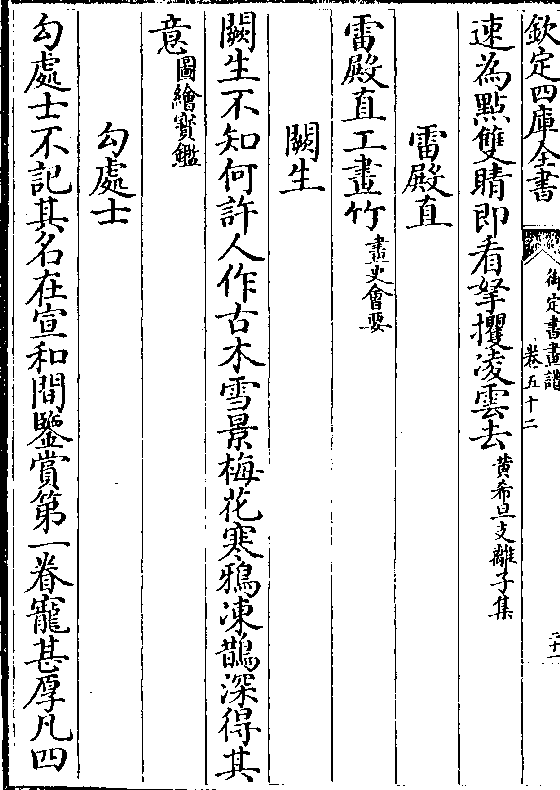 欽定四庫全書
御定書畫譜
卷五十二
二十一
速為點雙睛即看拏攫凌雲去黄希旦支離子集
雷殿直
雷殿直工畫竹畫史會要
闕生
闕生不知何許人作古木雪景梅花寒鴉凍鵲深得其
意圖繪寳鑑
勾處士
勾處士不記其名在宣和間鑒賞第一眷寵甚厚凡四